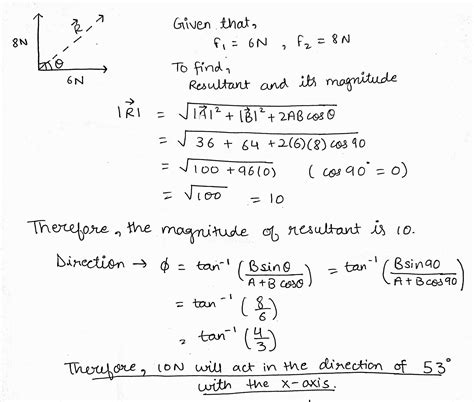 8N
R⃗
θ
6N
Given that,
f₁ = 6N , f₂ = 8N
To find,
Resultant and its magnitude
|R⃗| = √|A⃗|² + |B⃗|² + 2AB cosθ
= √36 + 64 + 2(6)(8) cos 90
= √100 + 96(0) (cos 90° = 0)
= √100 = 10
Therefore, the magnitude of resultant is 10.
Direction → φ = tan⁻¹ (B sinθ / A + B cosθ) = tan⁻¹ (B sin 90 / A + B cos 90)
= tan⁻¹ (8/6)
= tan⁻¹ (4/3)
Therefore, 10N will act in the direction of 53°
with the x-axis.